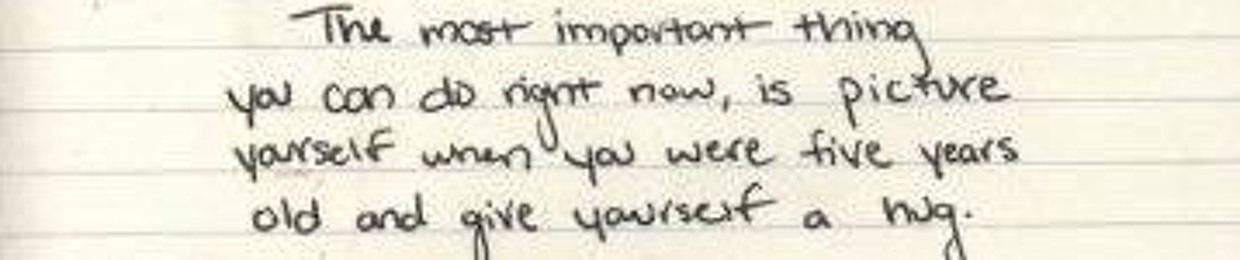 The most important thing
you can do right now, is picture
yourself when you were five years
old and give yourself a hug.